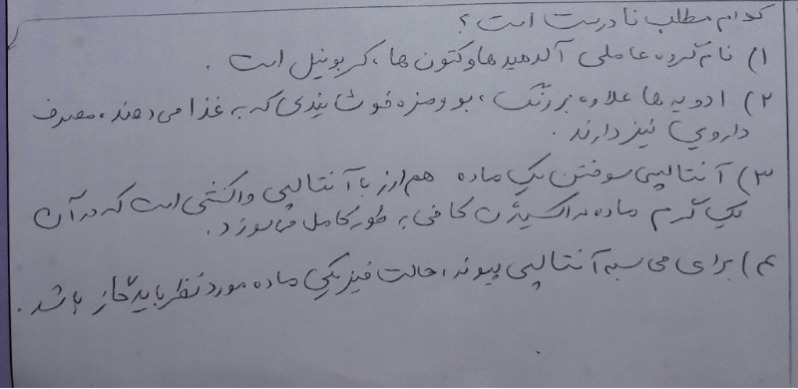 کدام مطلب نادرست است؟
۱) نام گروه عاملی آلدهیدها و کتون ها، کربونیل است.
۲) ادویه ها علاوه بر رنگ، بو و مزه خوشایندی که به غذا می دهند، مصرف
دارویی نیز دارند.
۳) آنتالپی سوختن یک ماده هم ارز با آنتالپی واکنشی است که در آن
یک گرم ماده در اکسیژن کافی به طور کامل می سوزد.
۴) برای محاسبه آنتالپی پیوند، حالت فیزیکی ماده مورد نظر باید گاز باشد.